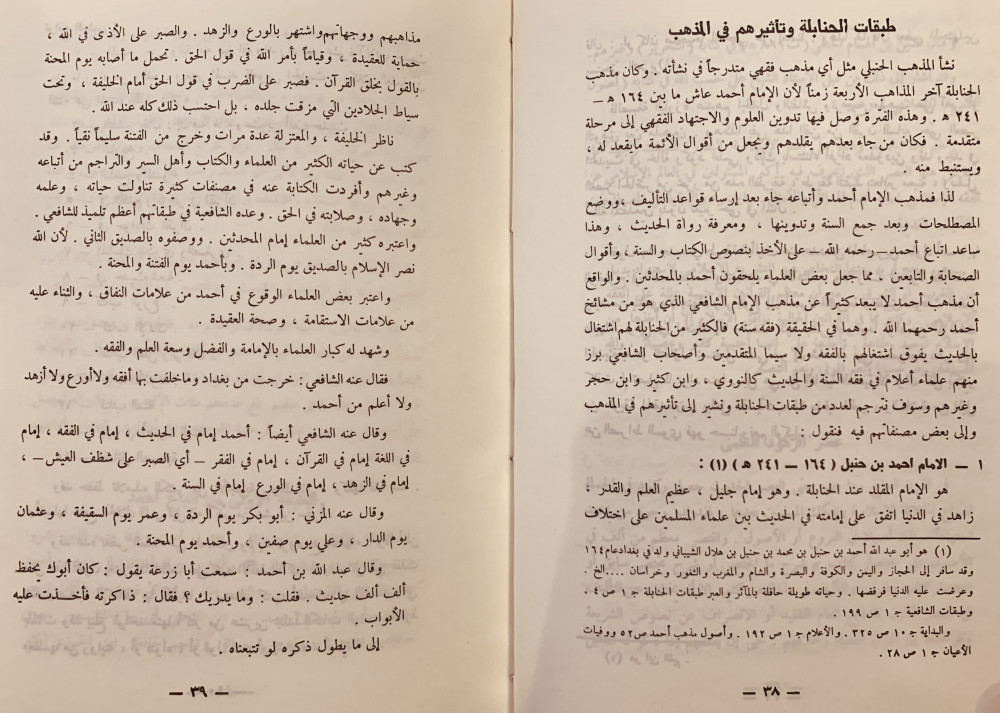 طبقات الحنابلة وتأثيرهم في المذهب
نشأ المذهب الحنبلي مثل أي مذهب فقهي متدرجاً في نشأته . وكان مذهب
الحنابلة آخر المذاهب الأربعة زمناً لأن الإمام أحمد عاش ما بين ١٦٤ هـ –
٢٤١ هـ . وهذه الفترة وصل فيها تدوين العلوم والاجتهاد الفقهي إلى مرحلة
متقدمة . فكان من جاء بعدهم يقلدهم ويجعل من أقوال الأئمة مايقعد له ،
ويستنبط منه .
لذا فمذهب الإمام أحمد وأتباعه جاء بعد إرساء قواعد التأليف ،ووضع
المصطلحات وبعد جمع السنة وتدوينها ، ومعرفة رواة الحديث ، وهذا
ساعد اتباع أحمد – رحمه الله – على الأخذ بنصوص الكتاب والسنة ، وأقوال
الصحابة والتابعين . مما جعل بعض العلماء يلحقون أحمد بالمحدثين . والواقع
أن مذهب أحمد لا يبعد كثيراً عن مذهب الإمام الشافعي الذي هو من مشائخ
أحمد رحمهما الله . وهما في الحقيقة (فقه سنة) فالكثير من الحنابلة لهم اشتغال
بالحديث يفوق اشتغالهم بالفقه ولا سيما المتقدمين وأصحاب الشافعي برز
منهم علماء أعلام في فقه السنة والحديث كالنووي ، وابن كثير وابن حجر
وغيرهم وسوف نترجم لعدد من طبقات الحنابلة ونشير إلى تأثيرهم في المذهب
وإلى بعض مصنفاتهم فيه فنقول :
١ – الامام احمد بن حنبل ( ١٦٤ – ٢٤١ هـ ) (١) :
هو الإمام المقلد عند الحنابلة . وهو إمام جليل ، عظيم العلم والقدر ،
زاهد في الدنيا اتفق على إمامته في الحديث بين علماء المسلمين على اختلاف
(١) هو أبو عبد الله أحمد بن حنبل بن محمد بن حنبل بن هلال الشيباني ولد في بغدادعام ١٦٤
وقد سافر إلى الحجاز واليمن والكوفة والبصرة والشام والمغرب والثغور وخراسان ....الخ .
وعرضت عليه الدنيا فرفضها . وحياته طويلة حافلة بالمآثر والعبر طبقات الحنابلة ج ١ ص ٤ .
وطبقات الشافعية ج ١ ص ١٩٩ .
والبداية ج ١٠ ص ٣٢٥ . والأعلام ج ١ ص ١٩٢ . وأصول مذهب أحمد ص٥٢ ووفيات
الأعيان ج ١ ص ٢٨ .
– ٣٨ –
مذاهبهم ووجهاتهم واشتهر بالورع والزهد . والصبر على الأذى في الله ،
حماية للعقيدة ، وقياماً بأمر الله في قول الحق . تحمل ما أصابه يوم المحنة
بالقول بخلق القرآن . فصبر على الضرب في قول الحق أمام الخليفة ، وتحت
سياط الجلادين التي مزقت جلده ، بل احتسب ذلك كله عند الله .
ناظر الخليفة ، والمعتزلة عدة مرات وخرج من الفتنة سليماً نقياً . وقد
كتب عن حياته الكثير من العلماء والكتاب وأهل السير والتراجم من أتباعه
وغيرهم وأفردت الكتابة عنه في مصنفات كثيرة تناولت حياته ، وعلمه
وجهاده ، وصلابته في الحق . وعده الشافعية في طبقاتهم أعظم تلميذ للشافعي .
واعتبره كثير من العلماء إمام المحدثين . ووصفوه بالصديق الثاني . لأن الله
نصر الإسلام بالصديق يوم الردة . وبأحمد يوم الفتنة والمحنة .
واعتبر بعض العلماء الوقوع في أحمد من علامات النفاق ، والثناء عليه
من علامات الاستقامة ، وصحة العقيدة .
وشهد له كبار العلماء بالإمامة والفضل وسعة العلم والفقه .
فقال عنه الشافعي : خرجت من بغداد وماخلفت بها أفقه ولاأورع ولا أزهد
ولا أعلم من أحمد .
وقال عنه الشافعي أيضاً : أحمد إمام في الحديث ، إمام في الفقه ، إمام
في اللغة إمام في القرآن ، إمام في الفقر – أي الصبر على شظف العيش – ،
إمام في الزهد ، إمام في الورع إمام في السنة .
وقال عنه المزني : أبو بكر يوم الردة ، وعمر يوم السقيفة ، وعثمان
يوم الدار ، وعلي يوم صفين ، وأحمد يوم المحنة .
وقال عبد الله بن أحمد : سمعت أبا زرعة يقول : كان أبوك يحفظ
ألف ألف حديث . فقلت : وما يدريك ؟ فقال : ذاكرته فأخذت عليه
الأبواب .
إلى ما يطول ذكره لو تتبعناه .
– ٣٩ –